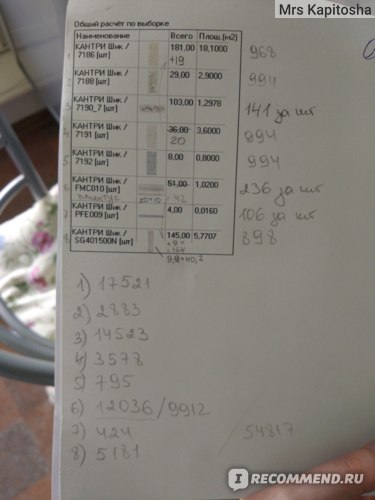 Mrs Kapitosha
Общый расчёт по выборке
Наименование Всего Площ.(м2)
1 КАНТРИ Шик / 7186 [шт] 181,00 18,1000 968
+19
2 КАНТРИ Шик / 7188 [шт] 29,00 2,9000 994
3 КАНТРИ Шик / 7190_7 [шт] 103,00 1,2978 141 за шт
4 КАНТРИ Шик / 7191 [шт] 36,00 3,6000 994
20
5 КАНТРИ Шик / 7192 [шт] 8,00 0,8000 994
6 КАНТРИ Шик / FMC010 [шт] 51,00 1,0200 236 за шт
плинтус 20+10 42
7 КАНТРИ Шик / PFE009 [шт] 4,00 0,0160 106 за шт
8 КАНТРИ Шик / SG401500N [шт] 145,00 5,7707 898
9,9*40,2
1) 17521
2) 2883
3) 14523
4) 3578
5) 795
6) 12036/9912
7) 424 /54817
8) 5181
IRECOMMEND.RU